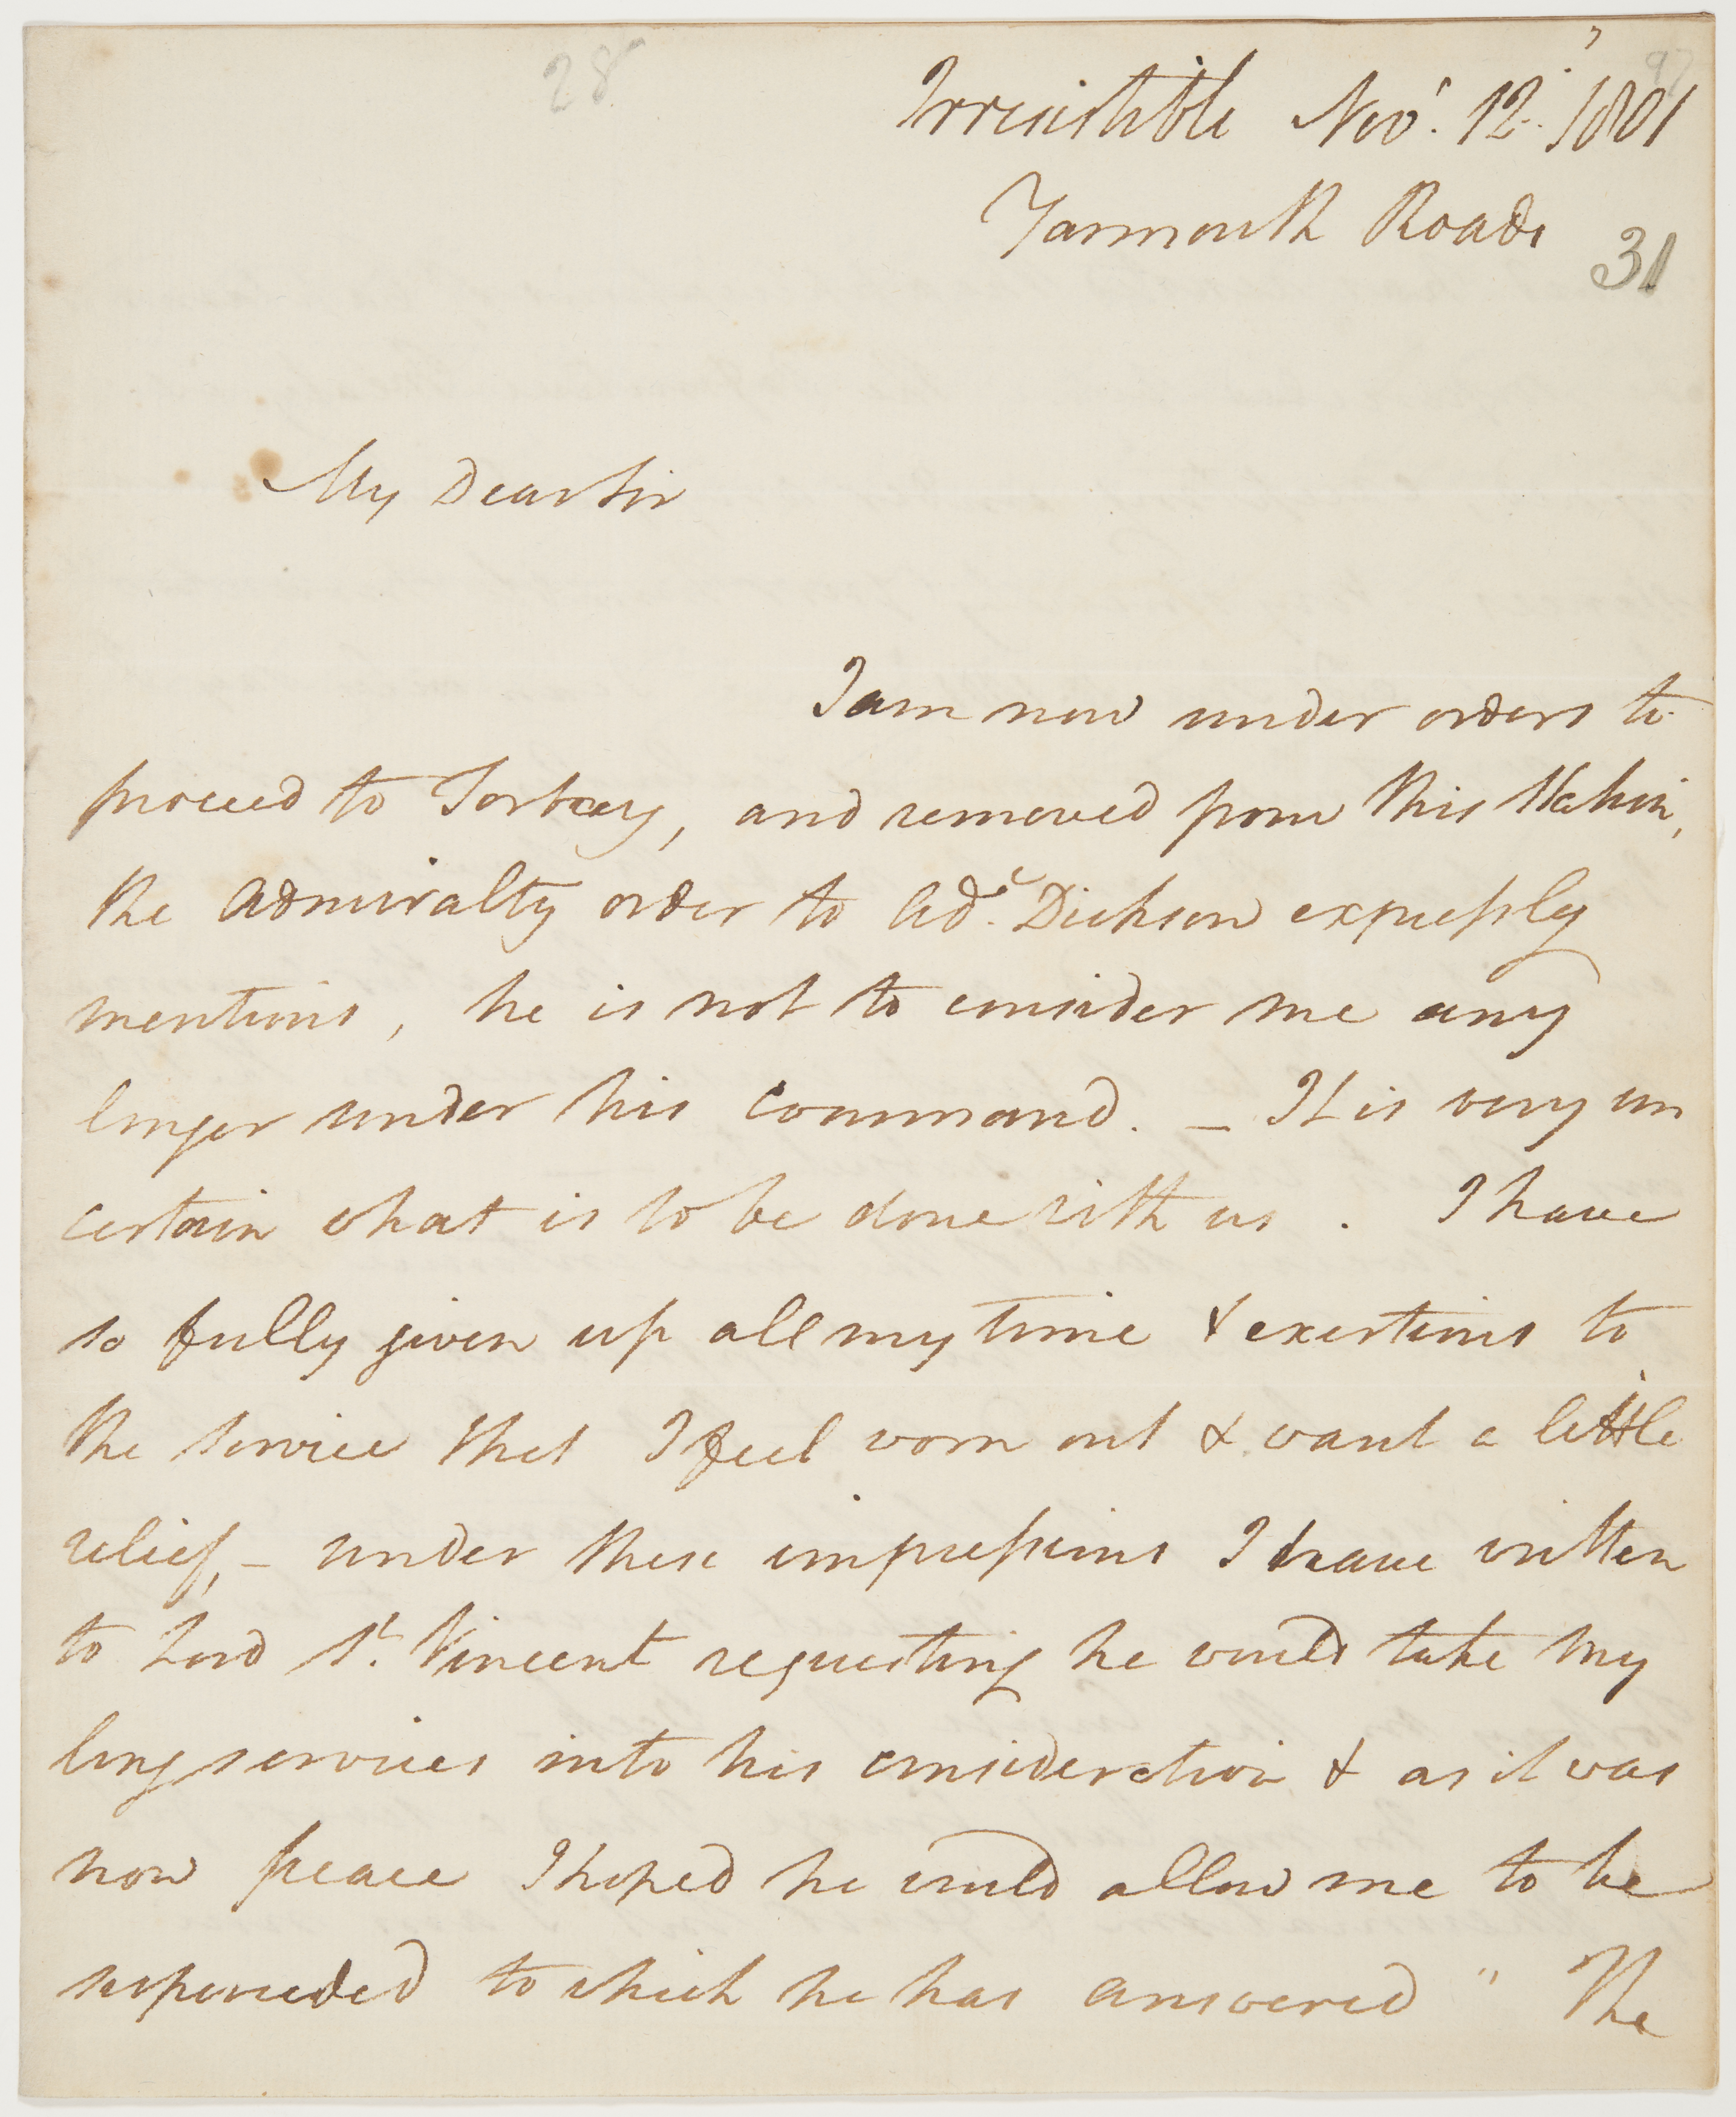 28
97
Irresistible Novr. 12. 1801
Yarmouth Roads
31
My Dear Sir
I am now under orders to
proceed to Torbay, and removed from this Station,
the Admiralty order to Adl. Dickson expressly
mentions, he is not to consider me any
longer under his Command. _ It is very un
certain what is to be done with us . I have
so fully given up all my time & exertions to
the service that I feel worn out & want a little
relief, _ under these impressions I have written
to Lord St. Vincent requesting he would take my
long services into his consideration & as it was
now peace I hoped he would allow me to be
superceded to which he has answered " The